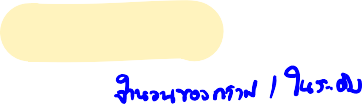 จำนวนของกราฟ / ในระดับ